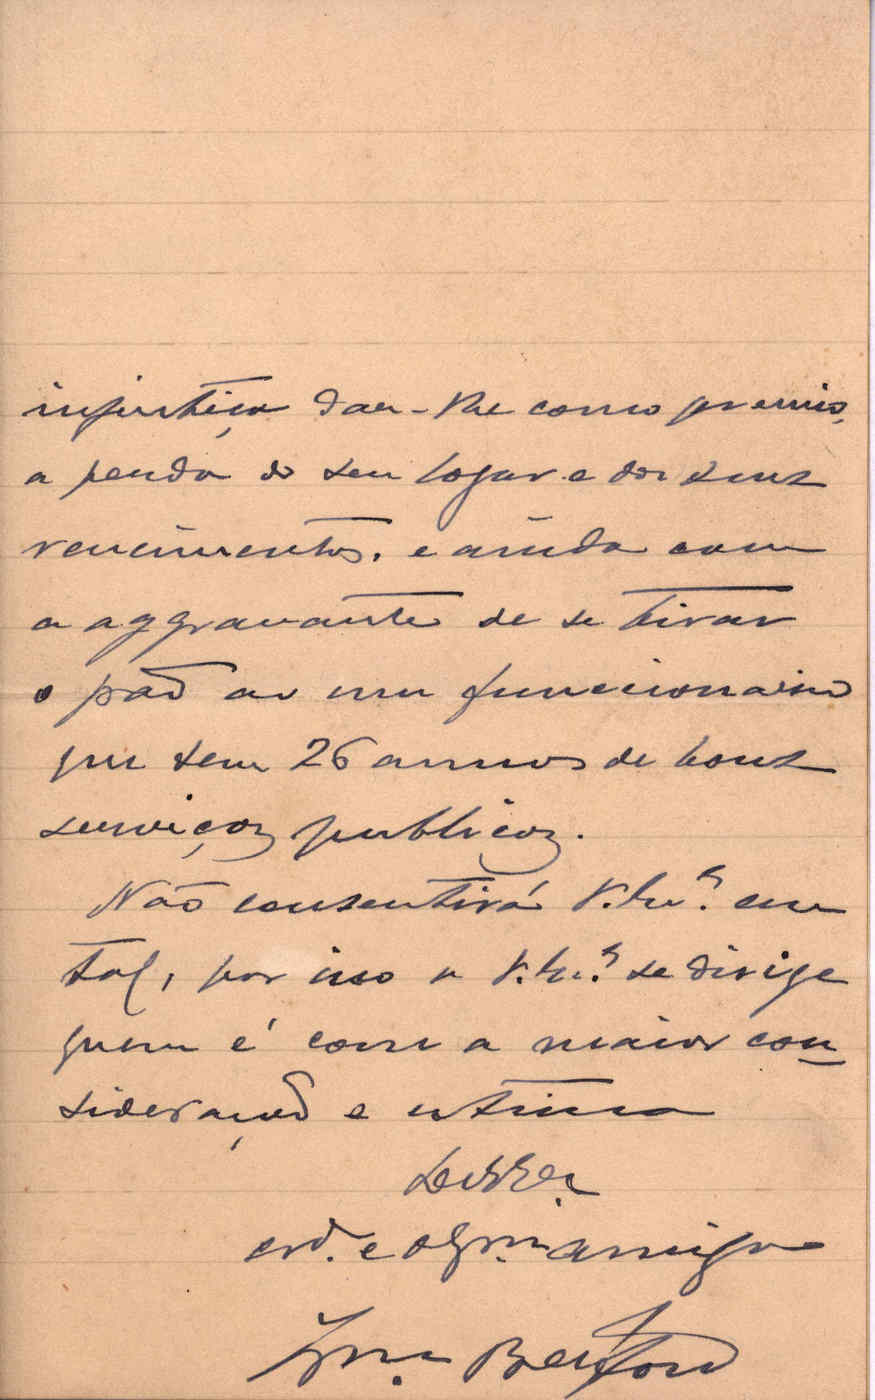 injustiça dar-lhe como premio,
a perda do seu logar e dos seus
vencimentos, e ainda com
a aggravante de se tirar
o pão ao um funccionario
que tem 26 annos de bons
serviços publicos.
Não consentirá V. Ex.ª em
tal, por isso a V. Ex.ª se dirige
quem é com a maior con
sideração e estima
De V. Ex.ª
crd.º e obg.mo amigo